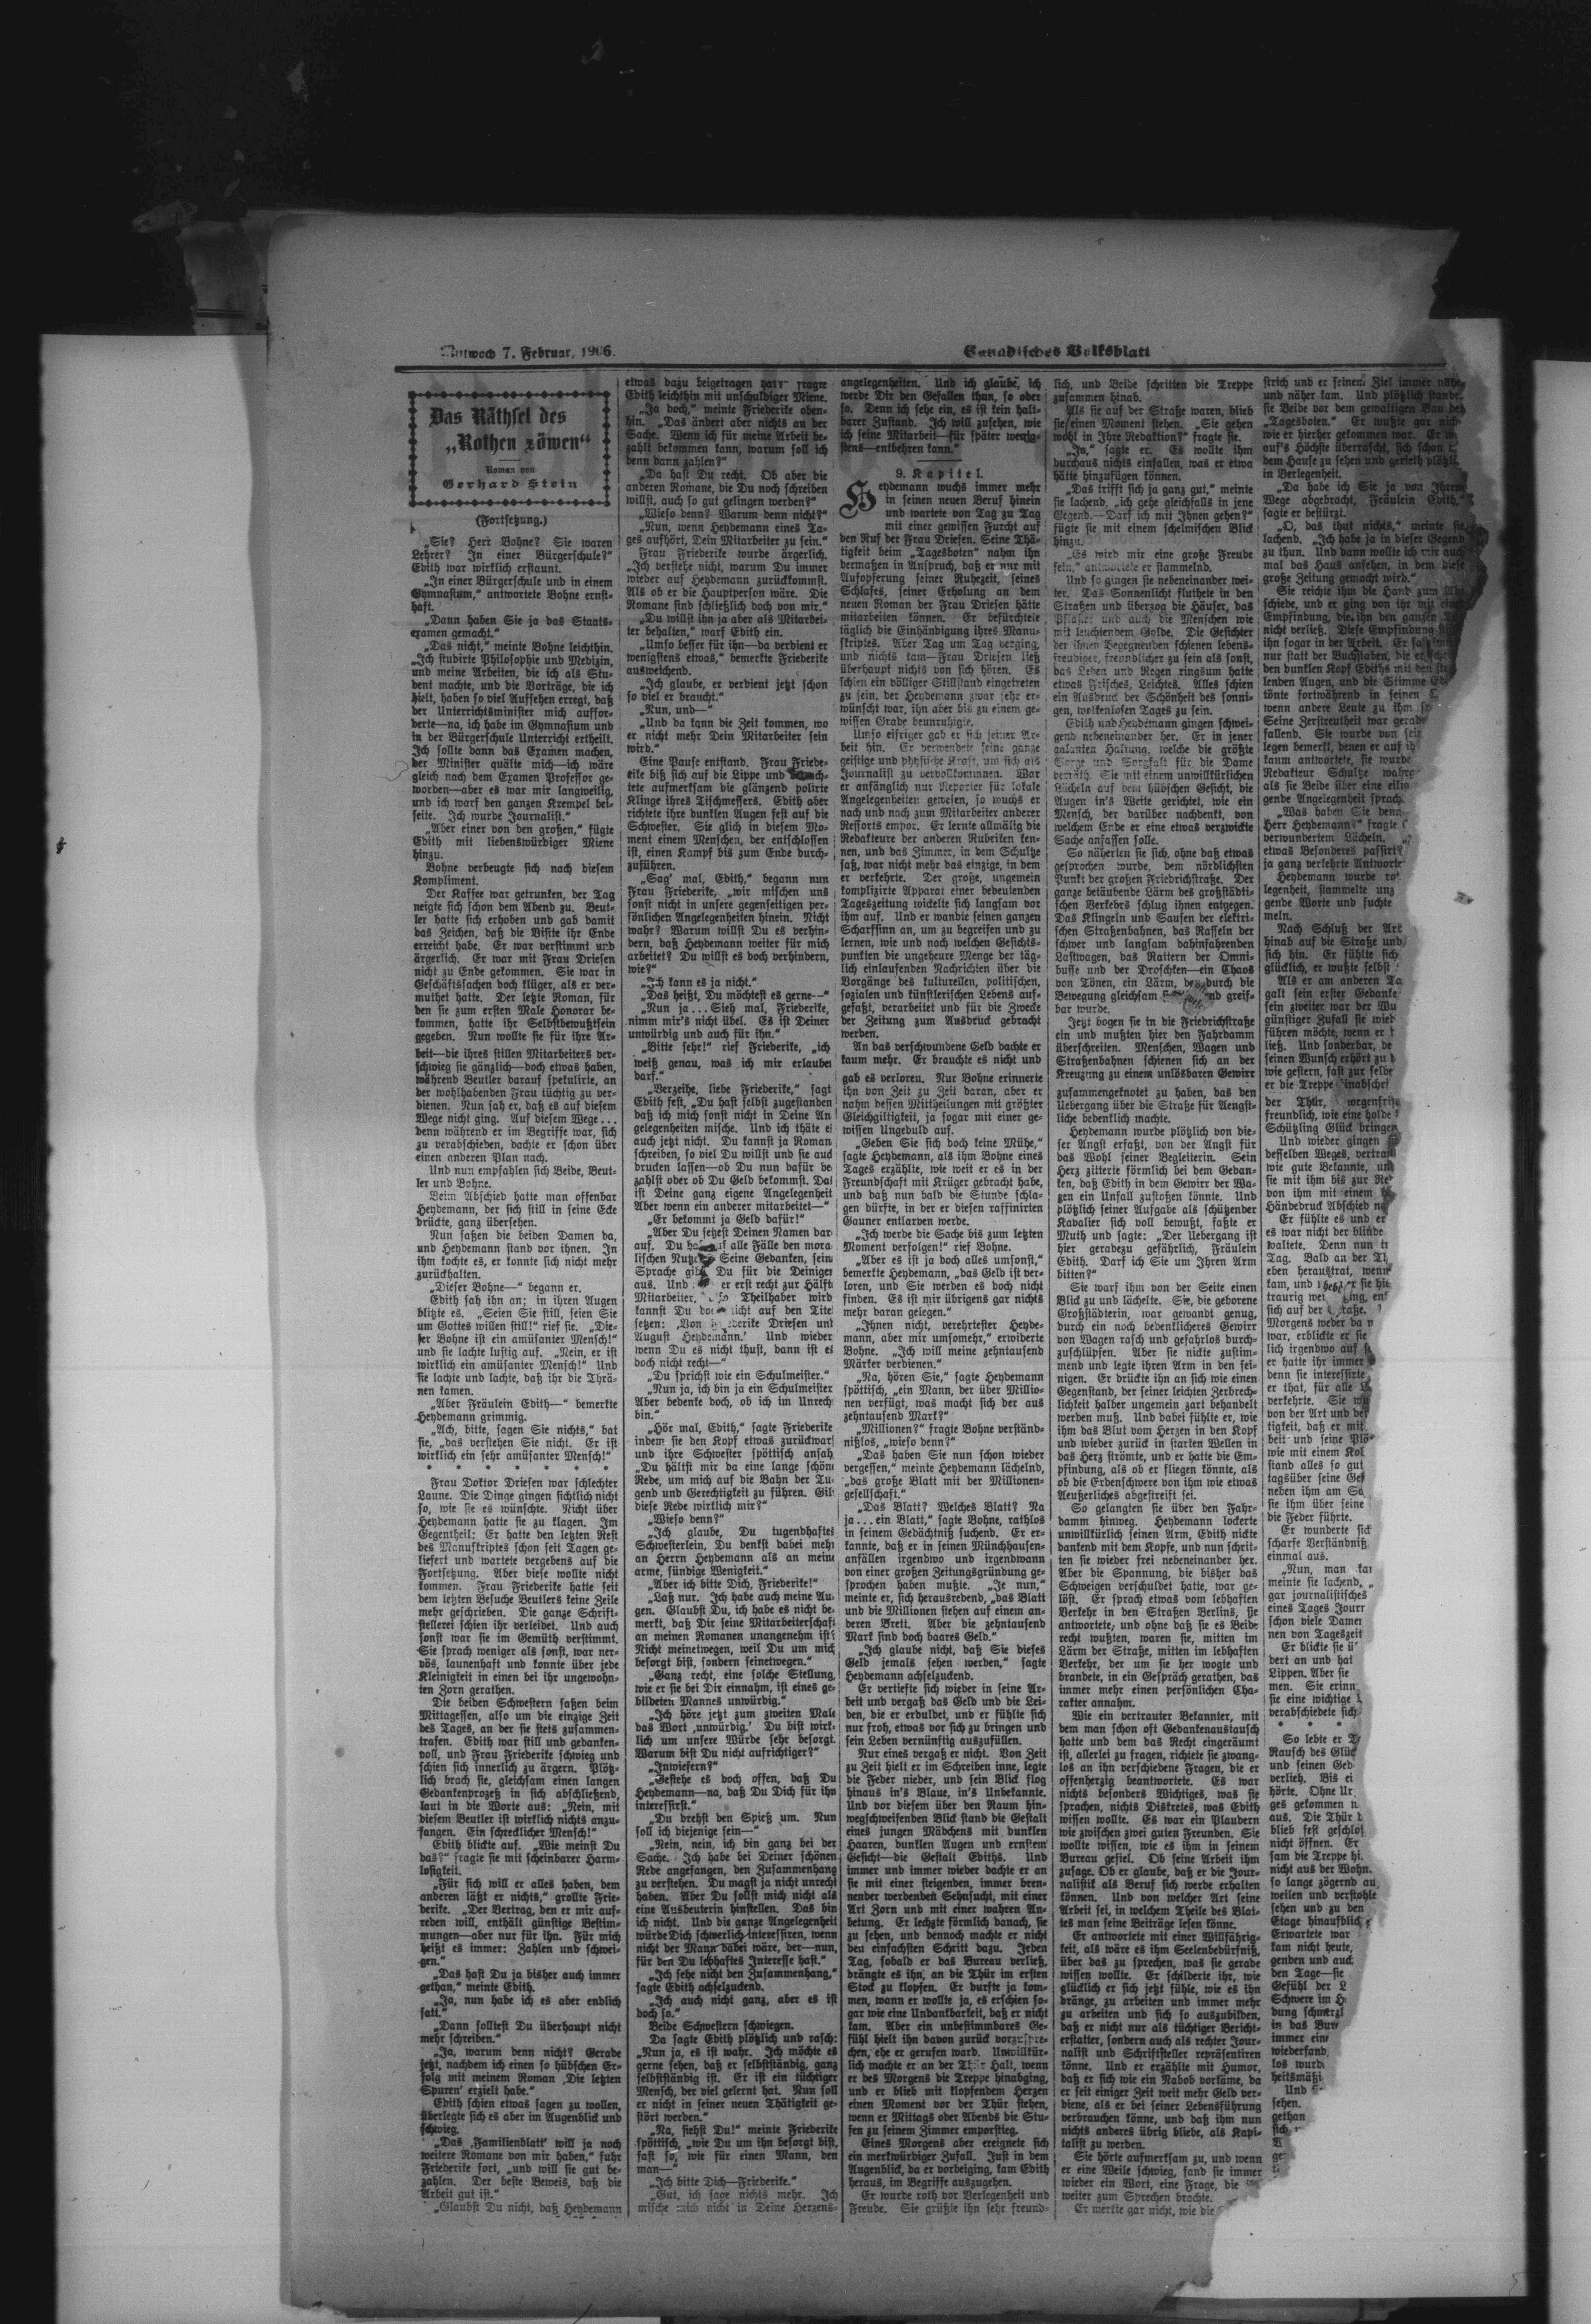 Mittwoch 7. Februar, 1906.
Canadisches Volksblatt
Das Räthsel des
„Rothen Löwen“
Roman von
Gerhard Stein
(Fortsetzung.)
„Sie? Herr Bohne? Sie waren
Lehrer? In einer Bürgerschule?“
Edith war wirklich erstaunt.
„In einer Bürgerschule und in einem
Gymnasium,“ antwortete Bohne ernst-
haft.
„Dann haben Sie ja das Staats-
examen gemacht.“
„Das nicht,“ meinte Bohne leichthin.
„Ich studirte Philosophie und Medizin,
und meine Arbeiten, die ich als Stu-
dent machte, und die Vorträge, die ich
hielt, haben so viel Aufsehen erregt, daß
der Unterrichtsminister mich auffor-
derte—na, ich habe im Gymnasium und
in der Bürgerschule Unterricht ertheilt.
Ich sollte dann das Examen machen,
der Minister quälte mich—ich wäre
gleich nach dem Examen Professor ge-
worden—aber es war mir langweilig,
und ich warf den ganzen Krempel bei-
seite. Ich wurde Journalist.“
„Aber einer von den großen,“ fügte
Edith mit liebenswürdiger Miene
hinzu.
Bohne verbeugte sich nach diesem
Kompliment.
Der Kaffee war getrunken, der Tag
neigte sich schon dem Abend zu. Beut-
ler hatte sich erhoben und gab damit
das Zeichen, daß die Visite ihr Ende
erreicht habe. Er war verstimmt und
ärgerlich. Er war mit Frau Driesen
nicht zu Ende gekommen. Sie war in
Geschäftssachen doch klüger, als er ver-
muthet hatte. Der letzte Roman, für
den sie zum ersten Male Honorar be-
kommen, hatte ihr Selbstbewußtsein
gegeben. Nun wollte sie für ihre Ar-
beit—die ihres stillen Mitarbeiters ver-
schwieg sie gänzlich—doch etwas haben,
während Beutler darauf spekulirte, an
der wohlhabenden Frau tüchtig zu ver-
dienen. Nun sah er, daß es auf diesem
Wege nicht ging. Auf diesem Wege...
denn während er im Begriffe war, sich
zu verabschieden, dachte er schon über
einen anderen Plan nach.
Und nun empfahlen sich Beide, Beut-
ler und Bohne.
Beim Abschied hatte man offenbar
Heydemann, der sich still in seine Ecke
drückte, ganz übersehen.
Nun saßen die beiden Damen da,
und Heydemann stand vor ihnen. In
ihm kochte es, er konnte sich nicht mehr
zurückhalten.
„Dieser Bohne—“ begann er.
Edith sah ihn an; in ihren Augen
blitzte es. „Seien Sie still, seien Sie
um Gottes willen still!“ rief sie. „Die-
ser Bohne ist ein amüsanter Mensch!“
und sie lachte lustig auf. „Nein, er ist
wirklich ein amüsanter Mensch!“ Und
sie lachte und lachte, daß ihr die Thrä-
nen kamen.
„Aber Fräulein Edith—“ bemerkte
Heydemann grimmig.
„Ach, bitte, sagen Sie nichts,“ bat
sie, „das verstehen Sie nicht. Er ist
wirklich ein sehr amüsanter Mensch!“
* * * * * *
Frau Doktor Driesen war schlechter
Laune. Die Dinge gingen sichtlich nicht
so, wie sie es wünschte. Nicht über
Heydemann hatte sie zu klagen. Im
Gegentheil: Er hatte den letzten Rest
des Manuskriptes schon seit Tagen ge-
liefert und wartete vergebens auf die
Fortsetzung. Aber diese wollte nicht
kommen. Frau Friederike hatte seit
dem letzten Besuche Beutlers keine Zeile
mehr geschrieben. Die ganze Schrift-
stellerei schien ihr verleidet. Und auch
sonst war sie im Gemüth verstimmt.
Sie sprach weniger als sonst, war ner-
vös, launenhaft und konnte über jede
Kleinigkeit in einen bei ihr ungewohn-
ten Zorn gerathen.
Die beiden Schwestern saßen beim
Mittagessen, also um die einzige Zeit
des Tages, an der sie stets zusammen-
trafen. Edith war still und gedanken-
voll, und Frau Friederike schwieg und
schien sich innerlich zu ärgern. Plötz-
lich brach sie, gleichsam einen langen
Gedankenprozeß in sich abschließend,
laut in die Worte aus: „Nein, mit
diesem Beutler ist wirklich nichts anzu-
fangen. Ein schrecklicher Mensch!“
Edith blickte auf. „Wie meinst Du
das?“ fragte sie mit scheinbarer Harm-
losigkeit.
„Für sich will er alles haben, dem
anderen läßt er nichts,“ grollte Frie-
derike. „Der Vertrag, den er mir auf-
reden will, enthält günstige Bestim-
mungen—aber nur für ihn. Für mich
heißt es immer: Zahlen und schwei-
gen.“
„Das hast Du ja bisher auch immer
gethan,“ meinte Edith.
„Ja, nun habe ich es aber endlich
satt.“
„Dann solltest Du überhaupt nicht
mehr schreiben.“
„Ja, warum denn nicht? Gerade
jetzt, nachdem ich einen so hübschen Er-
folg mit meinem Roman ‚Die letzten
Spuren‘ erzielt habe.“
Edith schien etwas sagen zu wollen,
überlegte sich es aber im Augenblick und
schwieg.
„Das ‚Familienblatt‘ will ja noch
weitere Romane von mir haben,“ fuhr
Friederike fort, „und will sie gut be-
zahlen. Der beste Beweis, daß die
Arbeit gut ist.“
„Glaubst Du nicht, daß Heydemann
etwas dazu beigetragen hat?“ fragte
Edith leichthin mit unschuldiger Miene.
„Ja doch,“ meinte Friederike oben-
hin. „Das ändert aber nichts an der
Sache. Wenn ich für meine Arbeit be-
zahlt bekommen kann, warum soll ich
denn dann zahlen?“
„Da hast Du recht. Ob aber die
anderen Romane, die Du noch schreiben
willst, auch so gut gelingen werden?“
„Wieso denn? Warum denn nicht?“
„Nun, wenn Heydemann eines Ta-
ges aufhört, Dein Mitarbeiter zu sein.“
Frau Friederike wurde ärgerlich.
„Ich verstehe nicht, warum Du immer
wieder auf Heydemann zurückkommst.
Als ob er die Hauptperson wäre. Die
Romane sind schließlich doch von mir.“
„Du willst ihn ja aber als Mitarbei-
ter behalten,“ warf Edith ein.
„Umso besser für ihn—da verdient er
wenigstens etwas,“ bemerkte Friederike
ausweichend.
„Ich glaube, er verdient jetzt schon
so viel er braucht.“
„Nun, und—“
„Und da kann die Zeit kommen, wo
er nicht mehr Dein Mitarbeiter sein
wird.“
Eine Pause entstand. Frau Friede-
rike biß sich auf die Lippe und
tete aufmerksam die glänzend polirte
Klinge ihres Tischmessers. Edith aber
richtete ihre dunklen Augen fest auf die
Schwester. Sie glich in diesem Mo-
ment einem Menschen, der entschlossen
ist, einen Kampf bis zum Ende durch-
zuführen.
„Sag' mal, Edith,“ begann nun
Frau Friederike, „wir mischen uns
sonst nicht in unsere gegenseitigen per-
sönlichen Angelegenheiten hinein. Nicht
wahr? Warum willst Du es verhin-
dern, daß Heydemann weiter für mich
arbeitet? Du willst es doch verhindern,
wie?“
„Ich kann es ja nicht.“
„Das heißt, Du möchtest es gerne—“
„Nun ja... Sieh mal, Friederike,
nimm mir's nicht übel. Es ist Deiner
unwürdig und auch für ihn.“
„Bitte sehr!“ rief Friederike, „ich
weiß genau, was ich mir erlauben
darf.“
„Verzeihe, liebe Friederike,“ sagt
Edith fest, „Du hast selbst zugestanden
daß ich mich sonst nicht in Deine An
gelegenheiten mische. Und ich thäte es
auch jetzt nicht. Du kannst ja Roman
schreiben, so viel Du willst und sie auch
drucken lassen—ob Du nun dafür be
zahlst oder ob Du Geld bekommst. Das
ist Deine ganz eigene Angelegenheit
Aber wenn ein anderer mitarbeitet—“
„Er bekommt ja Geld dafür!“
„Aber Du setzest Deinen Namen dar
auf. Du auf alle Fälle den mora
lischen Seine Gedanken, sein
Sprache Du für die Deinigen
aus. Und er erst recht zur Hälfte
Mitarbeiter, Theilhaber wird
kannst Du nicht auf den Titel
setzen: ‚Von Friederike Driesen und
August Heydemann.‘ Und wieder
wenn Du es nicht thust, dann ist es
doch nicht recht—“
„Du sprichst wie ein Schulmeister.“
„Nun ja, ich bin ja ein Schulmeister
Aber bedenke doch, ob ich im Unrecht
bin.“
„Hör mal, Edith,“ sagte Friederike
indem sie den Kopf etwas zurückwarf
und ihre Schwester spöttisch ansah
„Du hältst mir da eine lange schöne
Rede, um mich auf die Bahn der Tu-
gend und Gerechtigkeit zu führen. Gilt
diese Rede wirklich mir?“
„Wieso denn?“
„Ich glaube, Du tugendhaftes
Schwesterlein, Du denkst dabei mehr
an Herrn Heydemann als an meine
arme, sündige Wenigkeit.“
„Aber ich bitte Dich, Friederike!“
„Laß nur. Ich habe auch meine Au-
gen. Glaubst Du, ich habe es nicht be-
merkt, daß Dir seine Mitarbeiterschaft
an meinen Romanen unangenehm ist?
Nicht meinetwegen, weil Du um mich
besorgt bist, sondern seinetwegen.“
„Ganz recht, eine solche Stellung,
wie er sie bei Dir einnahm, ist eines ge-
bildeten Mannes unwürdig.“
„Ich höre jetzt zum zweiten Male
das Wort ‚unwürdig.‘ Du bist wirk-
lich um unsere Würde sehr besorgt.
Warum bist Du nicht aufrichtiger?“
„Inwiefern?“
„Gestehe es doch offen, daß Du
Heydemann—na, daß Du Dich für ihn
interessirst.“
„Du drehst den Spieß um. Nun
soll ich diejenige sein—“
„Nein, nein, ich bin ganz bei der
Sache. Ich habe bei Deiner schönen
Rede angefangen, den Zusammenhang
zu verstehen. Du magst ja nicht unrecht
haben. Aber Du sollst mich nicht als
eine Ausbeuterin hinstellen. Das bin
ich nicht. Und die ganze Angelegenheit
würde Dich schwerlich interessiren, wenn
nicht der Mann dabei wäre, der—nun,
für den Du lebhaftes Interesse hast.“
„Ich sehe nicht den Zusammenhang,“
sagte Edith achselzuckend.
„Ich auch nicht ganz, aber es ist
doch so.“
Beide Schwestern schwiegen.
Da sagte Edith plötzlich und rasch:
„Nun ja, es ist wahr. Ich möchte es
gerne sehen, daß er selbstständig, ganz
selbstständig ist. Er ist ein tüchtiger
Mensch, der viel gelernt hat. Nun soll
er nicht in seiner neuen Thätigkeit ge-
stört werden.“
„Na, siehst Du!“ meinte Friederike
spöttisch, „wie Du um ihn besorgt bist,
fast so, wie für einen Mann, den
man—“
„Ich bitte Dich—Friederike.“
„Gut, ich sage nichts mehr. Ich
mische mich nicht in Deine Herzens-
angelegenheiten. Und ich glaube, ich
werde Dir den Gefallen thun, so oder
so. Denn ich sehe ein, es ist kein halt-
barer Zustand. Ich will zusehen, wie
ich seine Mitarbeit—für später wenig-
stens—entbehren kann.“
9. Kapitel.
Heydemann wuchs immer mehr
in seinen neuen Beruf hinein
und wartete von Tag zu Tag
mit einer gewissen Furcht auf
den Ruf der Frau Driesen. Seine Thä-
tigkeit beim „Tagesboten“ nahm ihn
dermaßen in Anspruch, daß er nur mit
Aufopferung seiner Ruhezeit, seines
Schlafes, seiner Erholung an dem
neuen Roman der Frau Driesen hätte
mitarbeiten können. Er befürchtete
täglich die Einhändigung ihres Manu-
skriptes. Aber Tag um Tag verging,
und nichts kam—Frau Driesen ließ
überhaupt nichts von sich hören. Es
schien ein völliger Stillstand eingetreten
zu sein, der Heydemann zwar sehr er-
wünscht war, ihn aber bis zu einem ge-
wissen Grade beunruhigte.
Umso eifriger gab er sich seiner Ar-
beit hin. Er verwendete seine ganze
geistige und physische Kraft, um sich als
Journalist zu vervollkommnen. War
er anfänglich nur Reporter für lokale
Angelegenheiten gewesen, so wuchs er
nach und nach zum Mitarbeiter anderer
Ressorts empor. Er lernte allmälig die
Redakteure der anderen Rubriken ken-
nen, und das Zimmer, in dem Schultze
saß, war nicht mehr das einzige, in dem
er verkehrte. Der große, ungemein
komplizirte Apparat einer bedeutenden
Tageszeitung wickelte sich langsam vor
ihm auf. Und er wandte seinen ganzen
Scharfsinn an, um zu begreifen und zu
lernen, wie und nach welchen Gesichts-
punkten die ungeheure Menge der täg-
lich einlaufenden Nachrichten über die
Vorgänge des kulturellen, politischen,
sozialen und künstlerischen Lebens auf-
gefaßt, verarbeitet und für die Zwecke
der Zeitung zum Ausdruck gebracht
werden.
An das verschwundene Geld dachte er
kaum mehr. Er brauchte es nicht und
gab es verloren. Nur Bohne erinnerte
ihn von Zeit zu Zeit daran, aber er
nahm dessen Mittheilungen mit größter
Gleichgiltigkeit, ja sogar mit einer ge-
wissen Ungeduld auf.
„Geben Sie sich doch keine Mühe,“
sagte Heydemann, als ihm Bohne eines
Tages erzählte, wie weit er es in der
Freundschaft mit Krüger gebracht habe,
und daß nun bald die Stunde schla-
gen dürfte, in der er diesen raffinirten
Gauner entlarven werde.
„Ich werde die Sache bis zum letzten
Moment verfolgen!“ rief Bohne.
„Aber es ist ja doch alles umsonst,“
bemerkte Heydemann, „das Geld ist ver-
loren, und Sie werden es doch nicht
finden. Es ist mir übrigens gar nichts
mehr daran gelegen.“
„Ihnen nicht, verehrtester Heyde-
mann, aber mir umsomehr,“ erwiderte
Bohne. „Ich will meine zehntausend
Märker verdienen.“
„Na, hören Sie,“ sagte Heydemann
spöttisch, „ein Mann, der über Millio-
nen verfügt, was macht sich der aus
zehntausend Mark?“
„Millionen?“ fragte Bohne verständ-
nißlos, „wieso denn?“
„Das haben Sie nun schon wieder
vergessen,“ meinte Heydemann lächelnd,
„das große Blatt mit der Millionen-
gesellschaft.“
„Das Blatt? Welches Blatt? Na
ja... ein Blatt,“ sagte Bohne, rathlos
in seinem Gedächtniß suchend. Er er-
kannte, daß er in seinen Münchhausen-
anfällen irgendwo und irgendwann
von einer großen Zeitungsgründung ge-
sprochen haben mußte. „Je nun,“
meinte er, sich herausredend, „das Blatt
und die Millionen stehen auf einem an-
deren Brett. Aber die zehntausend
Mark sind doch baares Geld.“
„Ich glaube nicht, daß Sie dieses
Geld jemals sehen werden,“ sagte
Heydemann achselzuckend.
Er vertiefte sich wieder in seine Ar-
beit und vergaß das Geld und die Lei-
den, die er erduldet, und er fühlte sich
nur froh, etwas vor sich zu bringen und
sein Leben vernünftig auszufüllen.
Nur eines vergaß er nicht. Von Zeit
zu Zeit hielt er im Schreiben inne, legte
die Feder nieder, und sein Blick flog
hinaus in's Blaue, in's Unbekannte.
Und vor diesem über den Raum hin-
wegschweifenden Blick stand die Gestalt
eines jungen Mädchens mit dunklen
Haaren, dunklen Augen und ernstem
Gesicht—die Gestalt Ediths. Und
immer und immer wieder dachte er an
sie mit einer steigenden, immer bren-
nender werdenden Sehnsucht, mit einer
Art Zorn und mit einer wahren An-
betung. Er lechzte förmlich danach, sie
zu sehen, und dennoch machte er nicht
den einfachsten Schritt dazu. Jeden
Tag, sobald er das Bureau verließ,
drängte es ihn, an die Thür im ersten
Stock zu klopfen. Er durfte ja kom-
men, wann er wollte ja, es erschien so-
gar wie eine Undankbarkeit, daß er nicht
kam. Aber ein unbestimmbares Ge-
fühl hielt ihn davon zurück vorzuspre-
chen, ehe er gerufen ward. Unwillkür-
lich machte er an der Thür Halt, wenn
er des Morgens die Treppe hinabging,
und er blieb mit klopfendem Herzen
einen Moment vor der Thür stehen,
wenn er Mittags oder Abends die Stu-
fen zu seinem Zimmer emporstieg.
Eines Morgens aber ereignete sich
ein merkwürdiger Zufall. Just in dem
Augenblick, da er vorbeiging, kam Edith
heraus, im Begriffe auszugehen.
Er wurde roth vor Verlegenheit und
Freude. Sie grüßte ihn sehr freund-
lich, und Beide schritten die Treppe
zusammen hinab.
Als sie auf der Straße waren, blieb
sie einen Moment stehen. „Sie gehen
wohl in Ihre Redaktion?“ fragte sie.
„Ja,“ sagte er. Es wollte ihm
durchaus nichts einfallen, was er etwa
hätte hinzufügen können.
„Das trifft sich ja ganz gut,“ meinte
sie lachend, „ich gehe gleichfalls in jene
Gegend.—Darf ich mit Ihnen gehen?“
fügte sie mit einem schelmischen Blick
hinzu.
„Es wird mir eine große Freude
sein,“ antwortete er stammelnd.
Und so gingen sie nebeneinander wei-
ter. Das Sonnenlicht fluthete in den
Straßen und überzog die Häuser, das
Pflaster und auch die Menschen wie
mit leuchtendem Golde. Die Gesichter
der ihnen Begegnenden schienen lebens-
freudiger, freundlicher zu sein als sonst,
das Leben und Regen ringsum hatte
etwas Frisches, Leichtes. Alles schien
ein Ausdruck der Schönheit des sonni-
gen, wolkenlosen Tages zu sein.
Edith und Heydemann gingen schwei-
gend nebeneinander her. Er in jener
galanten Haltung, welche die größte
Sorge und Sorgfalt für die Dame
verräth. Sie mit einem unwillkürlichen
Lächeln auf dem hübschen Gesicht, die
Augen in's Weite gerichtet, wie ein
Mensch, der darüber nachdenkt, von
welchem Ende er eine etwas verzwickte
Sache anfassen solle.
So näherten sie sich, ohne daß etwas
gesprochen wurde, dem nördlichsten
Punkt der großen Friedrichstraße. Der
ganze betäubende Lärm des großstädti-
schen Verkehrs schlug ihnen entgegen.
Das Klingeln und Sausen der elektri-
schen Straßenbahnen, das Rasseln der
schwer und langsam dahinfahrenden
Lastwagen, das Rattern der Omni-
busse und der Droschken—ein Chaos
von Tönen, ein Lärm, der durch die
Bewegung gleichsam und greif-
bar wurde.
Jetzt bogen sie in die Friedrichstraße
ein und mußten hier den Fahrdamm
überschreiten. Menschen, Wagen und
Straßenbahnen schienen sich an der
Kreuzung zu einem unlösbaren Gewirr
zusammengeknotet zu haben, das den
Uebergang über die Straße für Aengst-
liche bedenklich machte.
Heydemann wurde plötzlich von die-
ser Angst erfaßt, von der Angst für
das Wohl seiner Begleiterin. Sein
Herz zitterte förmlich bei dem Gedan-
ken, daß Edith in dem Gewirr der Wa-
gen ein Unfall zustoßen könnte. Und
plötzlich seiner Aufgabe als schützender
Kavalier sich voll bewußt, faßte er
Muth und sagte: „Der Uebergang ist
hier geradezu gefährlich, Fräulein
Edith. Darf ich Sie um Ihren Arm
bitten?“
Sie warf ihm von der Seite einen
Blick zu und lächelte. Sie, die geborene
Großstädterin, war gewandt genug,
durch ein noch bedenklicheres Gewirr
von Wagen rasch und gefahrlos durch-
zuschlüpfen. Aber sie nickte zustim-
mend und legte ihren Arm in den sei-
nigen. Er drückte ihn an sich wie einen
Gegenstand, der seiner leichten Zerbrech-
lichkeit halber ungemein zart behandelt
werden muß. Und dabei fühlte er, wie
ihm das Blut vom Herzen in den Kopf
und wieder zurück in starken Wellen in
das Herz strömte, und er hatte die Em-
pfindung, als ob er fliegen könnte, als
ob die Erdenschwere von ihm wie etwas
Aeußerliches abgestreift sei.
So gelangten sie über den Fahr-
damm hinweg. Heydemann lockerte
unwillkürlich seinen Arm, Edith nickte
dankend mit dem Kopfe, und nun schrit-
ten sie wieder frei nebeneinander her.
Aber die Spannung, die bisher das
Schweigen verschuldet hatte, war ge-
löst. Er sprach etwas vom lebhaften
Verkehr in den Straßen Berlins, sie
antwortete, und ohne daß sie es Beide
recht wußten, waren sie, mitten im
Lärm der Straße, mitten im lebhaften
Verkehr, der um sie her wogte und
brandete, in ein Gespräch gerathen, das
immer mehr einen persönlichen Cha-
rakter annahm.
Wie ein vertrauter Bekannter, mit
dem man schon oft Gedankenaustausch
hatte und dem das Recht eingeräumt
ist, allerlei zu fragen, richtete sie zwang-
los an ihn verschiedene Fragen, die er
offenherzig beantwortete. Es war
nichts besonders Wichtiges, was sie
sprachen, nichts Diskretes, was Edith
wissen wollte. Es war ein Plaudern
wie zwischen zwei guten Freunden. Sie
wollte wissen, wie es ihm in seinem
Bureau gefiel. Ob seine Arbeit ihm
zusage. Ob er glaube, daß er die Jour-
nalistik als Beruf sich werde erhalten
können. Und von welcher Art seine
Arbeit sei, in welchem Theile des Blat-
tes man seine Beiträge lesen könne.
Er antwortete mit einer Willfährig-
keit, als wäre es ihm Seelenbedürfniß,
über das zu sprechen, was sie gerade
wissen wollte. Er schilderte ihr, wie
glücklich er sich jetzt fühle, wie es ihn
dränge, zu arbeiten und immer mehr
zu arbeiten und sich so auszubilden,
daß er nicht nur als tüchtiger Bericht-
erstatter, sondern auch als rechter Jour-
nalist und Schriftsteller repräsentiren
könne. Und er erzählte mit Humor,
daß er sich wie ein Nabob vorkäme, da
er seit einiger Zeit weit mehr Geld ver-
diene, als er bei seiner Lebensführung
verbrauchen könne, und daß ihm nun
nichts anderes übrig bliebe, als Kapi-
talist zu werden.
Sie hörte aufmerksam zu, und wenn
er eine Weile schwieg, fand sie immer
wieder ein Wort, eine Frage, die
weiter zum Sprechen brachte.
Er merkte gar nicht, wie die
strich und er seinem Ziel immer nähe-
und näher kam. Und plötzlich stande.
sie Beide vor dem gewaltigen Bau des
„Tagesboten.“ Er wußte gar nich
wie er hierher gekommen war. Er w
auf's Höchste überrascht, sich schon
dem Hause zu sehen und gerieth plötzl
in Verlegenheit.
„Da habe ich Sie ja von Ihrem
Wege abgebracht, Fräulein Edith,“
sagte er bestürzt.
„O, das thut nichts,“ meinte sie,
lachend. „Ich habe ja in dieser Gegend
zu thun. Und dann wollte ich mir auch
mal das Haus ansehen, in dem diese
große Zeitung gemacht wird.“
Sie reichte ihm die Hand zum Ab-
schiede, und er ging von ihr mit einer
Empfindung, die ihn den ganzen
nicht verließ. Diese Empfindung
ihn sogar in der Arbeit. Er
nur statt der Buchstaben, die er
den dunklen Kopf Ediths mit den
lenden Augen, und die Stimme
tönte fortwährend in seinen
wenn andere Leute zu ihm
Seine Zerstreutheit war gerade
fallend. Sie wurde von
legen bemerkt, denen er auf
kaum antwortete, sie wurde
Redakteur Schultze
als sie Beide über eine
gende Angelegenheit sprach
„Was haben Sie denn
Herr Heydemann?“ fragte
verwundertem Lächeln.
etwas Besonderes passirt?
ja ganz verkehrte Antworte
Heydemann wurde
legenheit, stammelte
gende Worte und suchte
meln.
Nach Schluß der
hinab auf die Straße und
sich hin. Er fühlte sich
glücklich, er wußte selbst
Als er am anderen
galt sein erster Gedanke
sein zweiter war der
günstiger Zufall sie
führen möchte, wenn er
ließ. Und sonderbar,
seinen Wunsch erhört zu
wie gestern, fast zur selbe
er die Treppe
der Thür,
freundlich, wie eine holde
Schützling Glück bringen
Und wieder gingen
desselben Weges,
wie gute Bekannte,
sie mit ihm bis zur
von ihm mit einem
Händedruck Abschied
Er fühlte es und er
es war nicht der blinde
waltete. Denn nun
Tag. Bald an der
eben heraustrat, wenn
kam, und sie
traurig
sich auf der Straße.
Morgens weder da
war, erblickte er sie
lich irgendwo auf
er hatte ihr immer
denn sie interessirte
er that, für alle
verkehrte. Sie
von der Art und der
tigkeit, daß er mit
beit und seine
wie mit einem
stand alles so gut
tagsüber seine
neben ihm am
sie ihm über seine
die Feder führte.
Er wunderte
scharfe Verständniß
einmal aus.
„Nun, man
meinte sie lachend,
gar journalistisches
eines Tages
schon viele
nen von Tageszeit
Er blickte sie
dert an und hat
Lippen. Aber sie
men. Sie
sie eine wichtige
verabschiedete sich
* * *
So lebte er
Rausch des
und seinen
verließ. Bis
hörte. Ohne
ges gekommen
aus. Die Thür
blieb fest
nicht öffnen. Er
sam die Treppe
nicht aus der Wohn.
so lange zögernd
weilen und
sehen und zu den
Etage
Erwartete war
kam nicht heute,
genden und auch
den Tage—sie
Gefühl der
Schwere im
dung
in das
immer
wiederfand
los
heitsmäßi
Und
sehen.
gethan
sich,